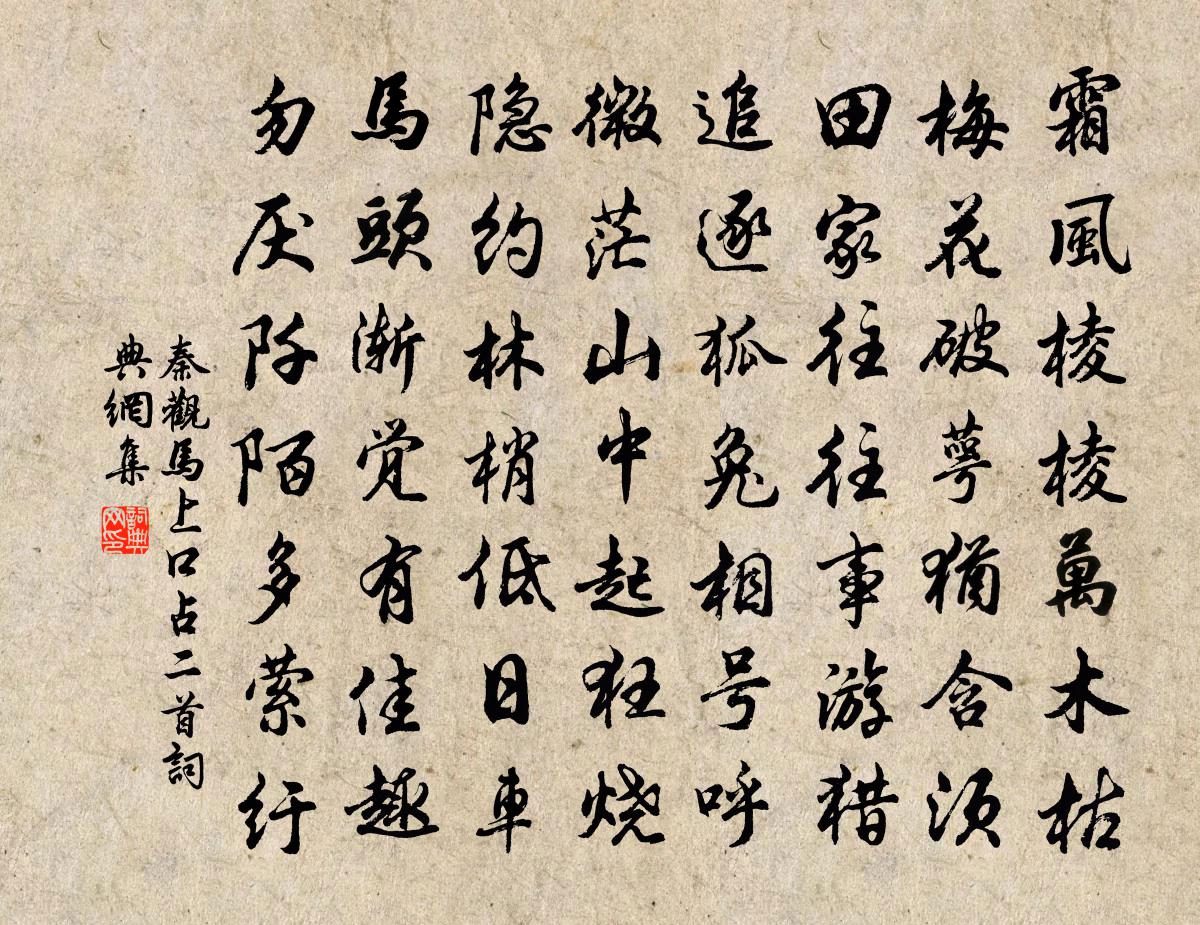 霜風棱棱萬木枯
梅花破萼猶含須
田家往往事游猎
追逐狐兔相号呼
微茫山中起狂烧
隐约林梢低日車
馬頭渐觉有佳趣
勿厌阡陌多萦纡
秦觀馬上口占二首詞
典網集
詞典
网印